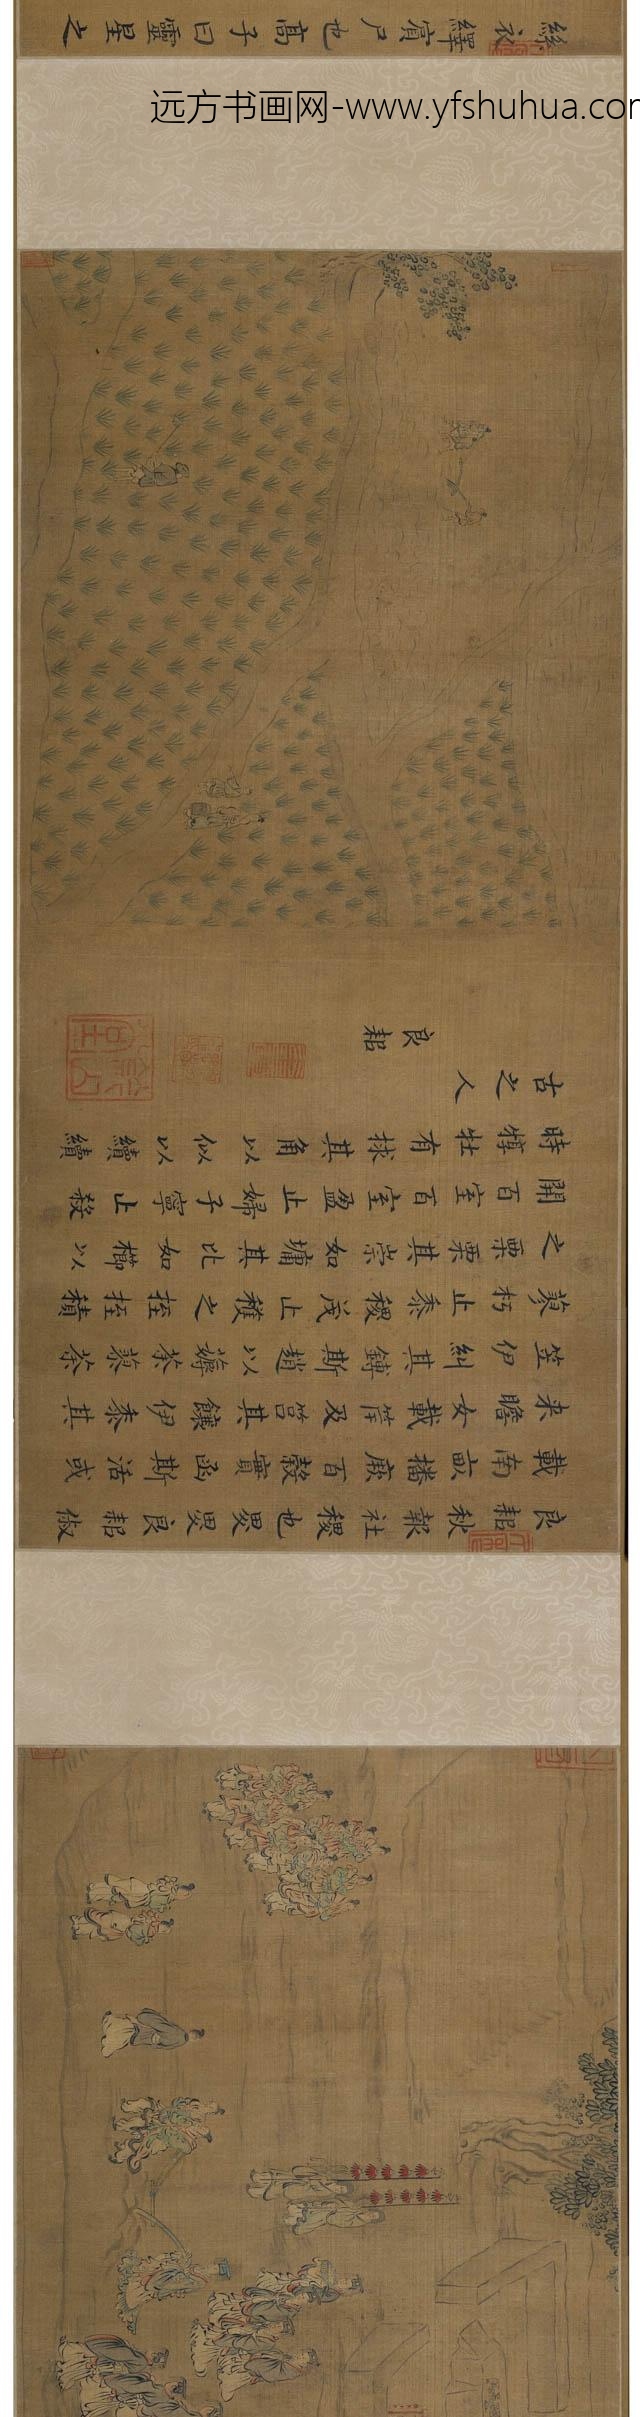 远方书画网-www.yfshuhua.com
良耜秋報社稷也畟畟良耜俶
載南畝播厥百穀實函斯活或
来瞻女載筐及筥其饟伊黍其
笠伊糾其鎛斯趙以薅荼蓼荼
蓼朽止黍稷茂止穫之挃挃積
之栗栗其崇如墉其比如櫛以
開百室百室盈止婦子寧止殺
時犉牡有捄其角以似以續續
古之人
良耜
絲衣繹賓尸也高子曰靈星之